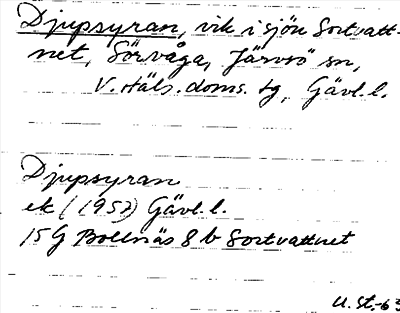 Djupsyran, vik i sjön Sortvatt-
net, Sörvåga, Järvsö sn,
V. Häls. doms. tg, Gävl. l.
Djupsyran
ek (1957) Gävl. l.
15G Bollnäs 8b Sortvattnet
U. St.-63